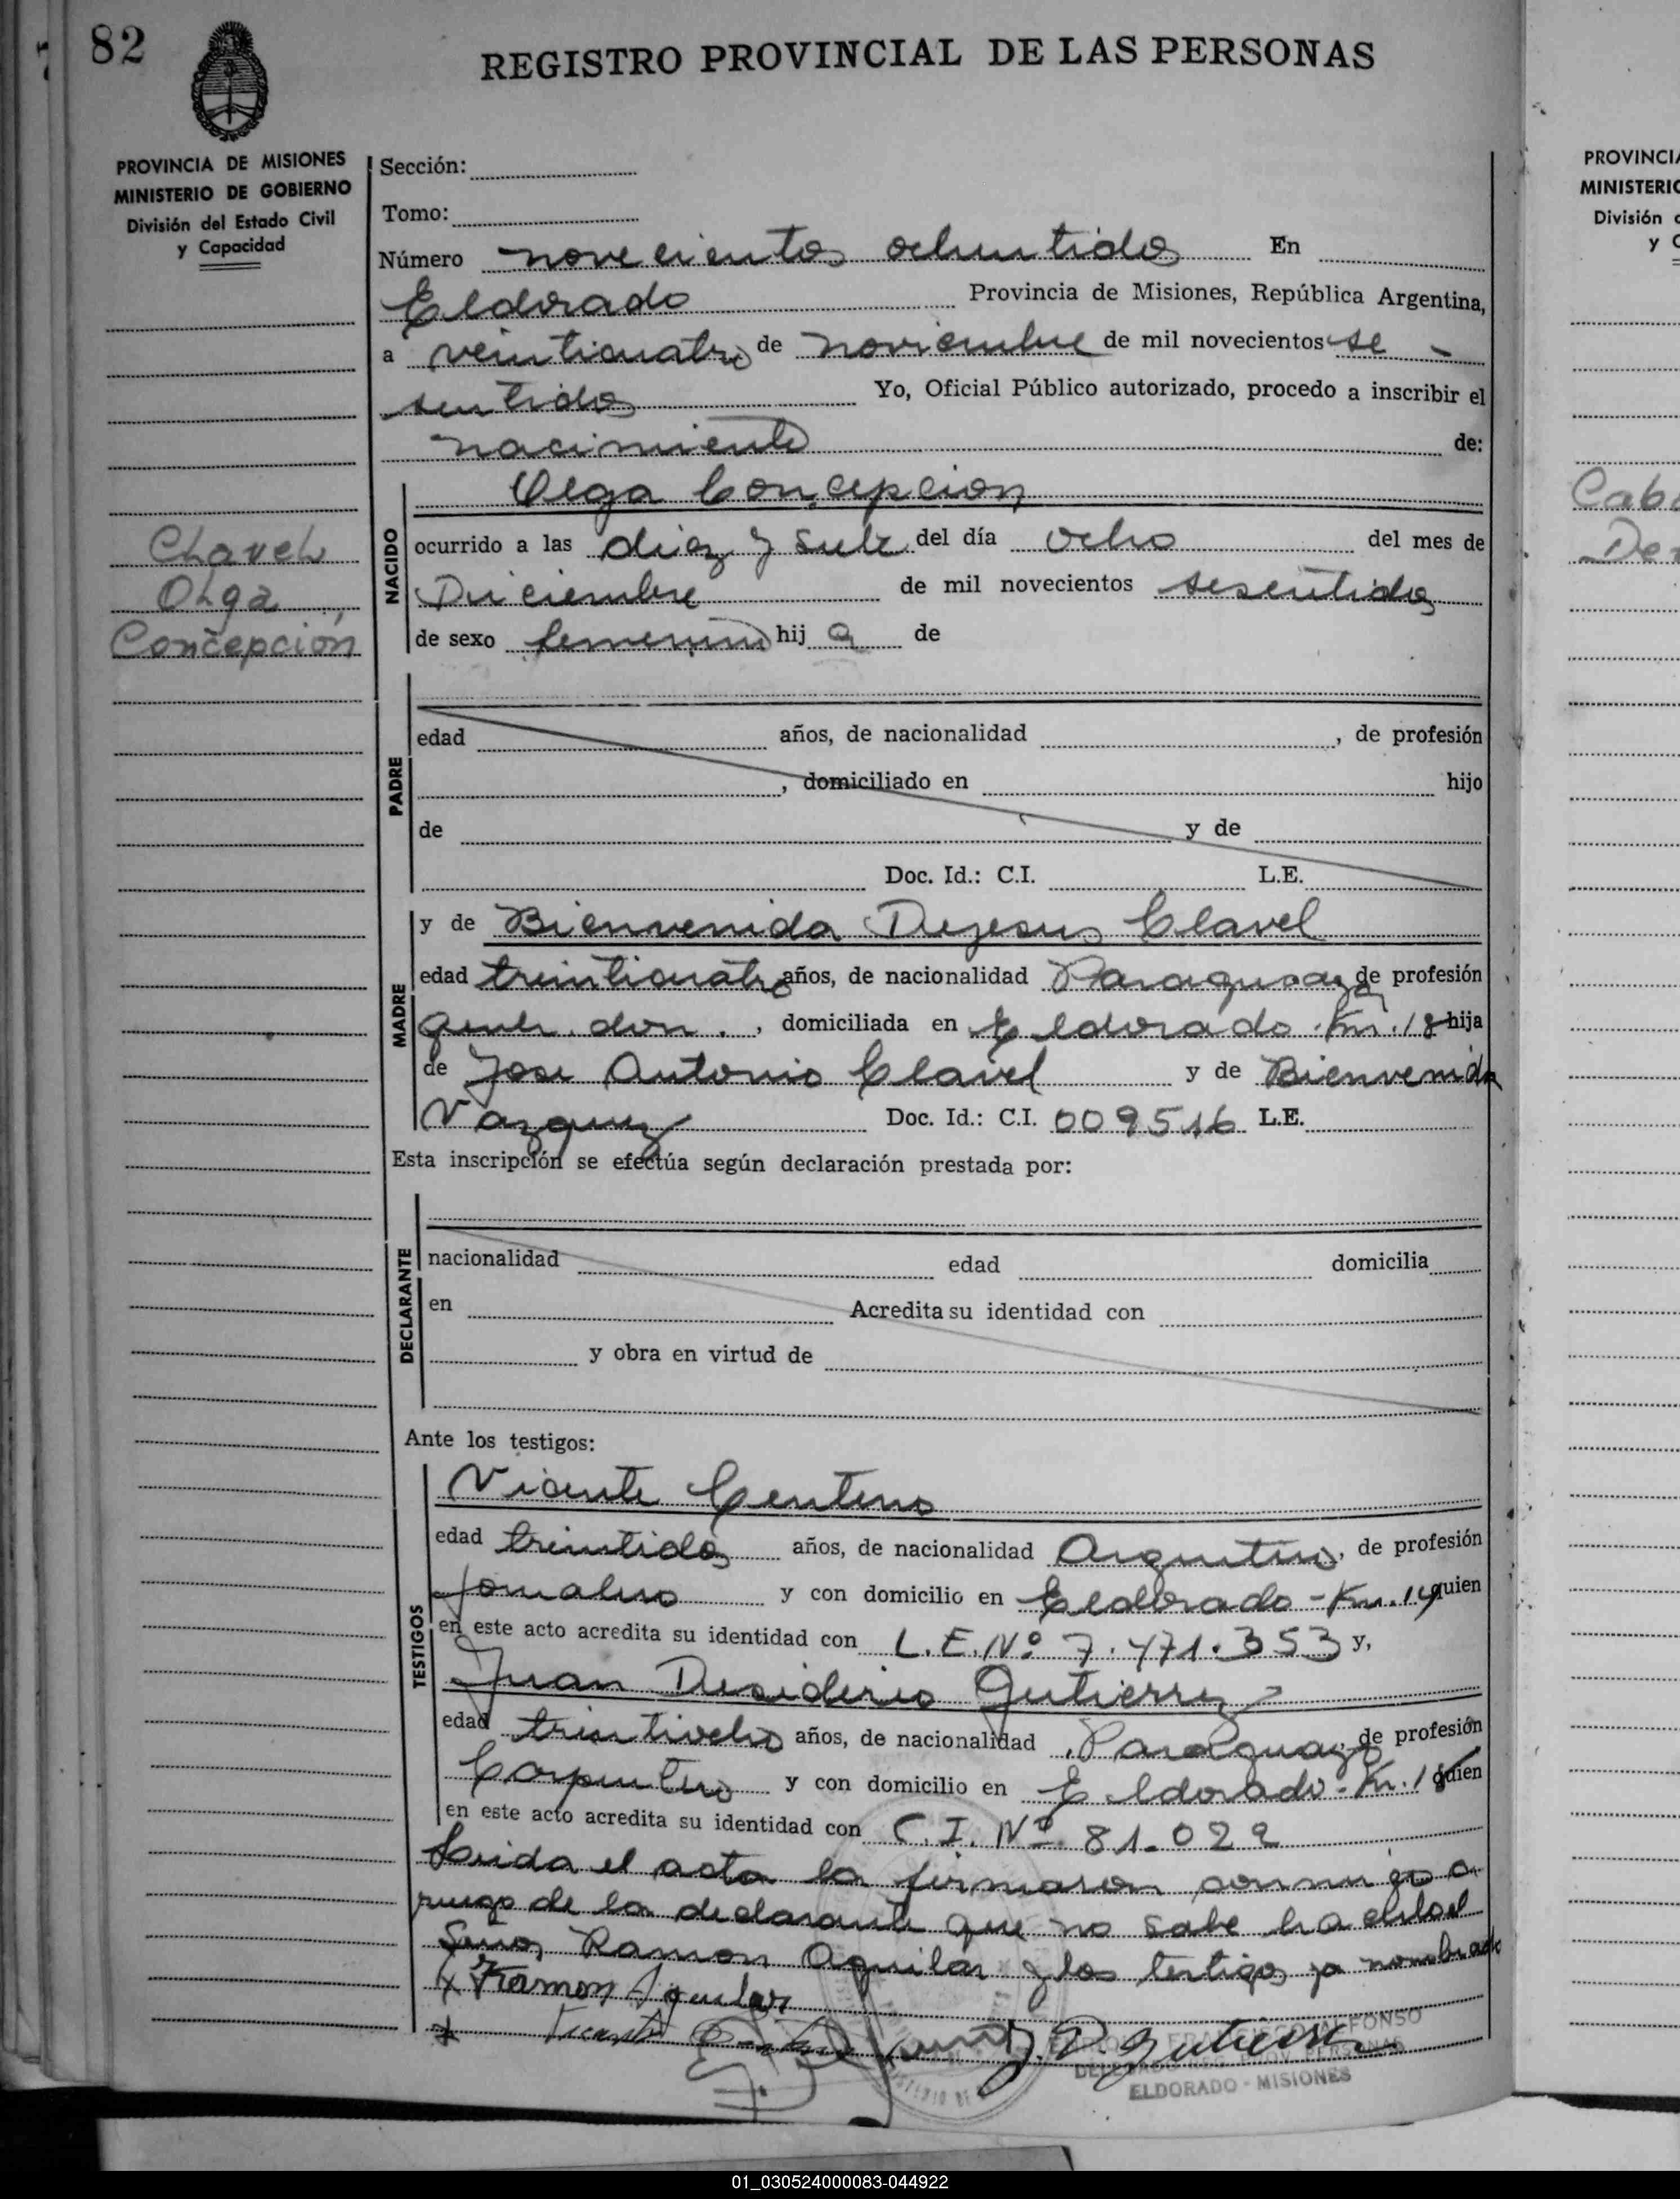 82
REGISTRO PROVINCIAL DE LAS PERSONAS
PROVINCIA DE MISIONES
MINISTERIO DE GOBIERNO
División del Estado Civil
y Capacidad
Sección:
Tomo:
Número novecientos ochentidos En
Eldorado Provincia de Misiones, República Argentina,
a veinticuatro de noviembre de mil novecientos se -
sentidos Yo, Oficial Público autorizado, procedo a inscribir el
nacimiento de:
Chavel
Olga
Concepción
NACIDO
Olga Concepcion
ocurrido a las diez y siete del día ocho del mes de
Diciembre de mil novecientos sesentidos
de sexo femenino hij a de
PADRE
edad años, de nacionalidad , de profesión
, domiciliado en hijo
de y de
Doc. Id.: C.I. L.E.
MADRE
y de Bienvenida Dejesus Clavel
edad treinticuatro años, de nacionalidad Paraguaya de profesión
queh. dom. , domiciliada en Eldorado Km. 18 hija
de Jose Antonio Clavel y de Bienvenida
Vazquez Doc. Id.: C.I. 009516 L.E.
Esta inscripción se efectúa según declaración prestada por:
DECLARANTE
nacionalidad edad domicilia
en Acredita su identidad con
y obra en virtud de
Ante los testigos:
TESTIGOS
Vicente Centeno
edad treintidos años, de nacionalidad Argentino, de profesión
Jornalero y con domicilio en Eldorado - Km. quien
en este acto acredita su identidad con L.E. Nº 7.471.353 y,
Juan Desiderio Gutierrez
edad treintiocho años, de nacionalidad Paraguayo de profesión
Carpintero y con domicilio en Eldorado - Km. quien
en este acto acredita su identidad con C.I. Nº 81.022
Leida el acta la firmaron conmigo a
ruego de la declarante que no sabe hacerlo el
Señor Ramon Aguilar y los testigos ya nombrados
x Ramon Aguilar
J. D. Gutierrez
ALFONSO
ELDORADO - MISIONES
PROVINCIA
MINISTERIO
División
y C
01_030524000083-044922